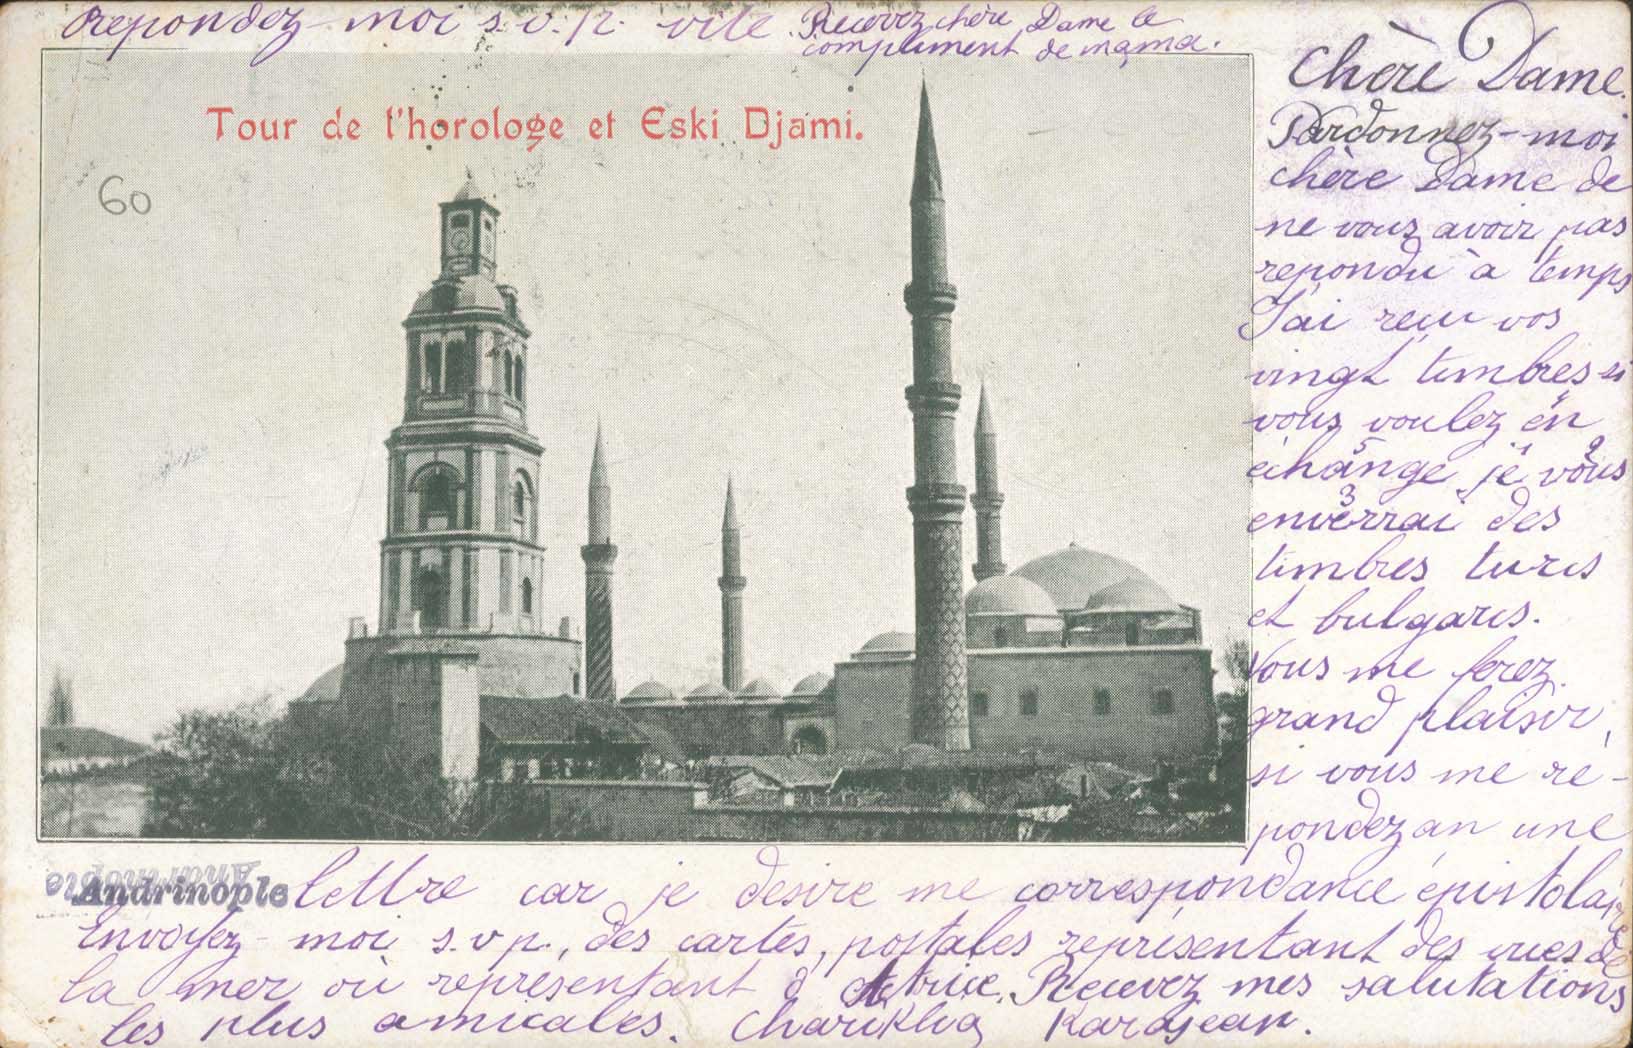 Repondez-moi s.v.p. vite. Recevez chère Dame le
compliment de mama.
Tour de l'horologe et Eski Djami.
60
Chère Dame.
Pardonnez-moi
chère Dame de
ne vous avoir pas
repondu à temps
J'ai reçu vos
vingt timbres si
vous voulez en
échange je vous
enverrai des
timbres turcs
et bulgares.
Vous me ferez
grand plaisir,
si vous me re-
pondez an une
Andrinople
lettre car je desire me correspondance épistolaire
Envoyez-moi s.v.p., des cartes, postales représentant des vues de
la mer où représentant d'Actrice. Recevez mes salutations
les plus amicales. Chariklia Karajean.